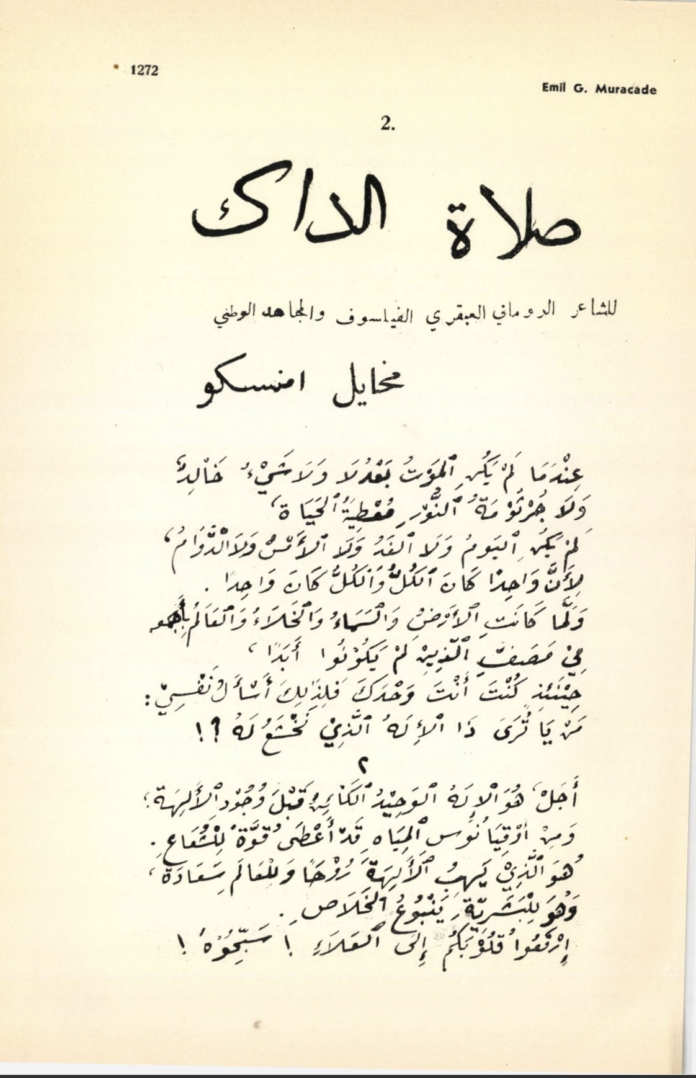 1272
Emil G. Muracade
2.
صلاة الداك
للشاعر الروماني العبقري الفيلسوف والمجاهد الوطني
مخايل امنسكو
عِنْدَمَا لَمْ يَكُنِ الْمَوْتُ بَعْدُ لَا وَلَا شَيْءٌ خَالِدٌ
وَلَا جُرْثُوْمَةُ النُّوْرِ مُعْطِيَةُ الحَيَاةِ،
لَمْ يَكُنِ اليَومُ وَلَا الغَدُ وَلَا الأَمْسُ وَلَا الدَّوَامُ،
لِأَنَّ وَاحِدًا كَانَ الكُلُّ وَالكُلُّ كَانَ وَاحِدًا .
وَلَمَّا كَانَتِ الأَرْضُ وَالسَّمَاءُ وَالخَلَاءُ وَالعَالَمُ
فِيْ مَصَفِّ الَّذِيْنَ لَمْ يَكُوْنُوا أَبَدًا ،
حِيْنَئِذٍ كُنْتَ أَنْتَ وَحْدَكَ فَلِذَلِكَ أَسْأَلُ نَفْسِيْ :
مَنْ يَا تُرَى ذَا الإِلَهُ الَّذِيْ نَخْشَعُ لَهُ ؟!
٢
أَجَلْ، هُوَ الإِلَهُ الوَحِيْدُ الكَائِنُ قَبْلَ وُجُوْدِ الأَلِهَةِ؛
وَمِنْ أُوْقِيَانُوسِ المِيَاهِ قَدْ أَعْطَى قُوَّةً لِلْشُعَاعِ .
هُوَ الَّذِيْ يَهِبُ الأَلِهَةَ رُوْحًا وَلِلْعَالَمِ سَعَادَةً ،
وَهُوَ لِلْبَشَرِيَّةِ يَنْبُوعُ الخَلَاصِ .
إِرْفَعُوا قُلُوْبَكُمْ إِلَى العَلَاءِ ! سَبِّحُوْهُ !